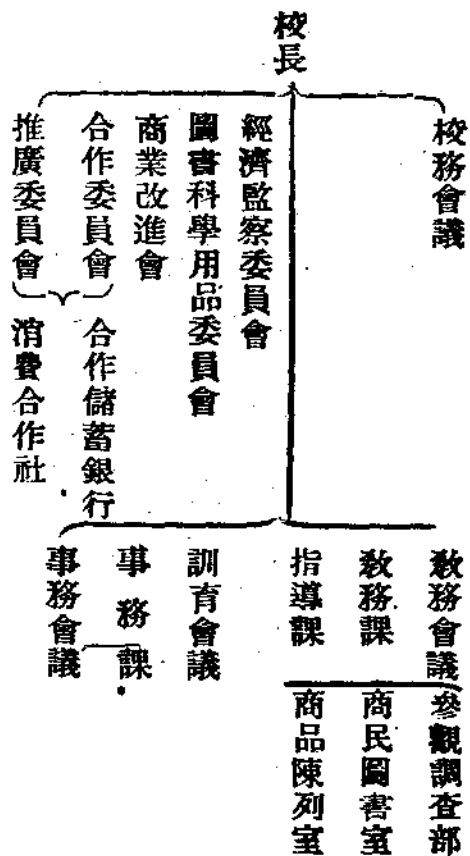 校長
校務會議
經濟監察委員會
圖書科學用品委員會
商業改進會
合作委員會
推廣委員會
合作儲蓄銀行
消費合作社
教務會議
教務課
指導課
訓育會議
事務課
事務會議
參觀調查部
商民圖書室
商品陳列室